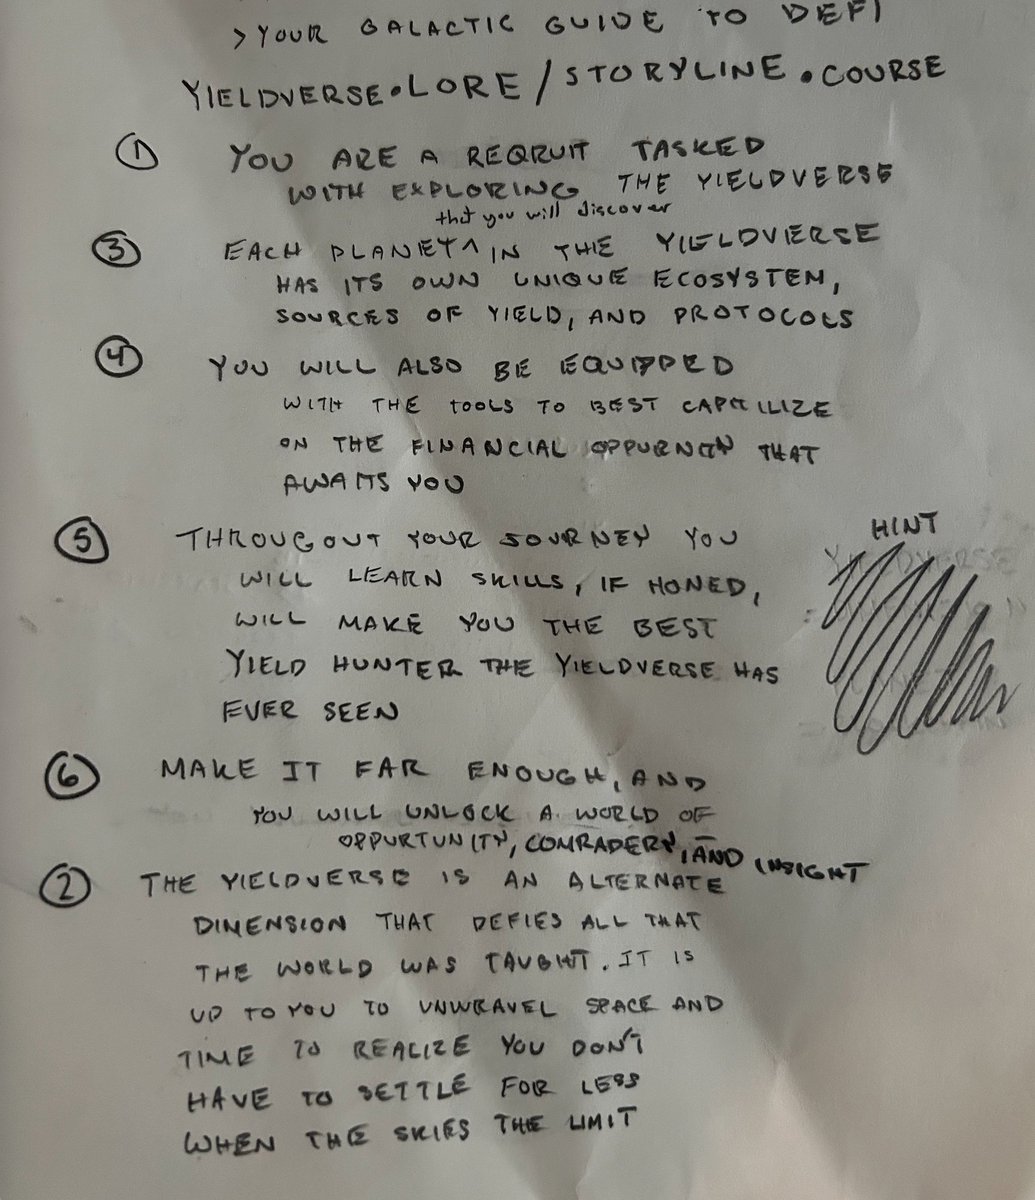 > YOUR GALACTIC GUIDE TO DEFI
YIELDVERSE.LORE/STORYLINE.COURSE
① YOU ARE A REQRUIT TASKED
WITH EXPLORING THE YIELDVERSE
that you will discover
③ EACH PLANET ^ IN THE YIELDVERSE
HAS ITS OWN UNIQUE ECOSYSTEM,
SOURCES OF YIELD, AND PROTOCOLS
④ YOU WILL ALSO BE EQUIPPED
WITH THE TOOLS TO BEST CAPITILIZE
ON THE FINANCIAL THAT
AWAITS YOU
⑤ THROUGOUT YOUR JOURNEY YOU
WILL LEARN SKILLS, IF HONED,
WILL MAKE YOU THE BEST
YIELD HUNTER THE YIELDVERSE HAS
EVER SEEN
HINT
⑥ MAKE IT FAR ENOUGH, AND
YOU WILL UNLOCK A WORLD OF
OPPURTUNITY, COMRADERY, AND INSIGHT
② THE YIELDVERSE IS AN ALTERNATE
DIMENSION THAT DEFIES ALL THAT
THE WORLD WAS TAUGHT. IT IS
UP TO YOU TO UNWRAVEL SPACE AND
TIME TO REALIZE YOU DON'T
HAVE TO SETTLE FOR LESS
WHEN THE SKIES THE LIMIT